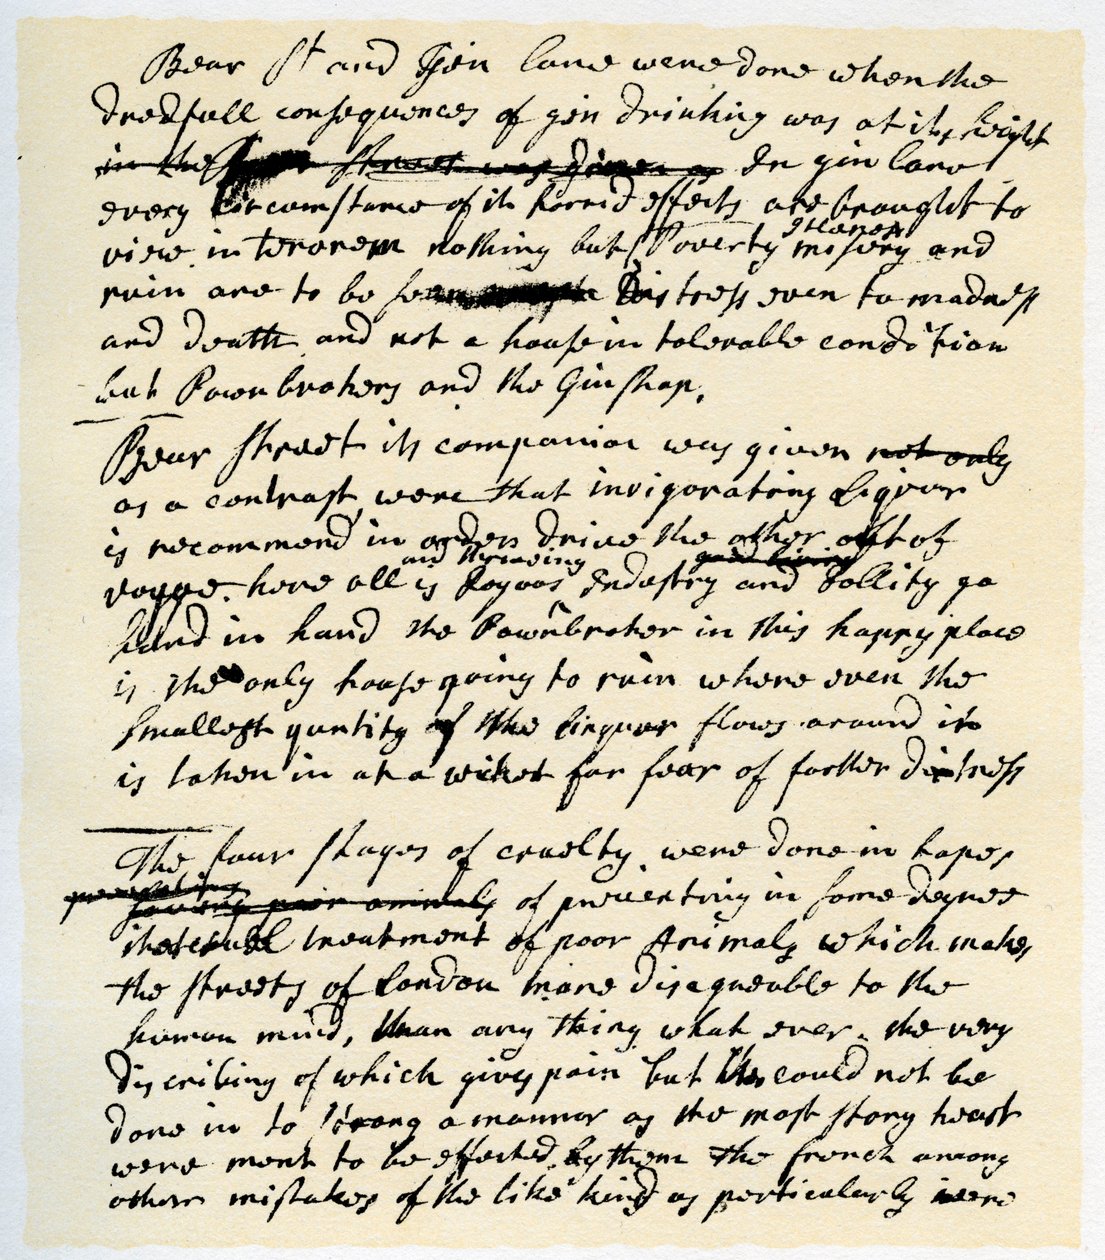 Bear St and Gin lane were done when the
dredfull consequences of gin drinking was at its height
in the street was given as In gin lane
every circumstance of its horrid effects are brought to
view in terorem nothing but Poverty misery and
ruin are to be seen Distress even to madness
and death and not a house in tolerable condition
but Pawnbrokers and the Ginshop.
Bear Street its companion was given not only
as a contrast, were that invigorating Liquor
is recommend in orders drive the other out of
and thriveing good living
vogue. here all is Joyous Industry and Jollity go
hand in hand the Pawnbroker in this happy place
is the only house going to ruin where even the
smallest quntity of the linquer flows around it
is taken in at a wicket for fear of farther distress
The four stages of cruelty were done in hopes
of preventing in some degree
that cruel treatment of poor Animals which makes
the streets of London more disagreable to the
human mind, than any thing what ever. the very
discribing of which gives pain but this could not be
done in to strong a mannor as the most stony heart
were ment to be effected by them The french among
other mistakes of the like kind as perticularly were